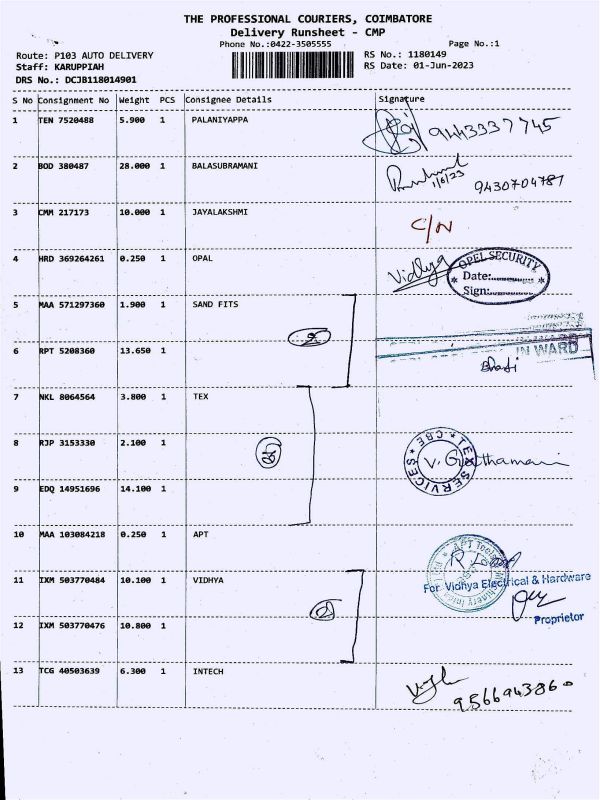 THE PROFESSIONAL COURIERS, COIMBATORE
Delivery Runsheet - CMP
Phone No.:0422-3505555 Page No.:1
Route: P103 AUTO DELIVERY RS No.: 1180149
Staff: KARUPPIAH RS Date: 01-Jun-2023
DRS No.: DCJB118014901
S No Consignment No Weight PCS Consignee Details Signature
1 TEN 7520488 5.900 1 PALANIYAPPA 9443337745
2 BOD 380487 28.000 1 BALASUBRAMANI 1/6/23 9430704781
3 CMM 217173 10.000 1 JAYALAKSHMI C/N
4 HRD 369264261 0.250 1 OPAL Vidhya OPEL SECURITY
Date:
Sign:
5 MAA 571297360 1.900 1 SAND FITS
6 RPT 5208360 13.650 1 IN WARD
7 NKL 8064564 3.800 1 TEX
8 RJP 3153330 2.100 1 TEX SERVICES CBE
9 EDQ 14951696 14.100 1
10 MAA 103084218 0.250 1 APT
11 IXM 503770484 10.100 1 VIDHYA For Vidhya Electrical & Hardware
12 IXM 503770476 10.800 1 Proprietor
13 TCG 40503639 6.300 1 INTECH